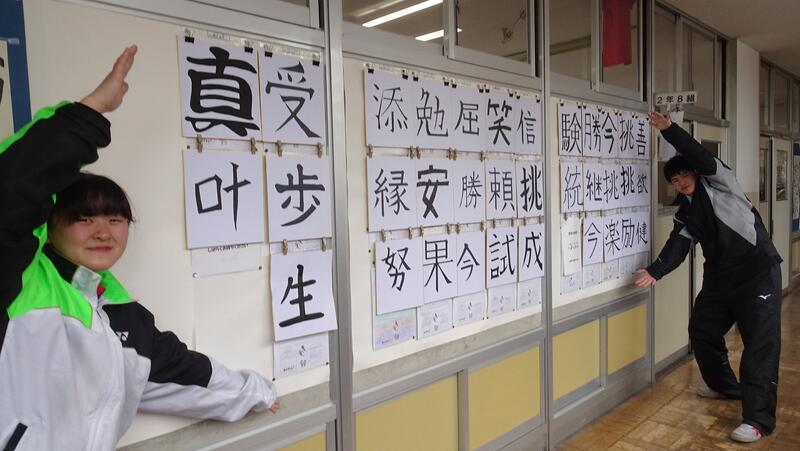 2年8組
真受
叶歩
生
添勉屈笑信
縁安勝頼挑
努果今試成
験勝今挑善
統継挑挑欲
今楽励健
YONEX